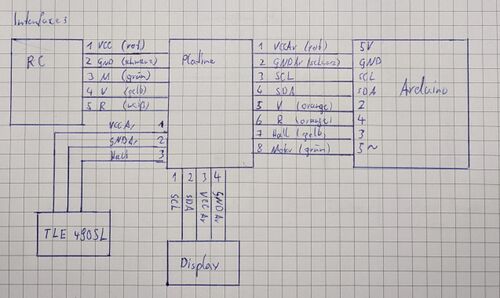 Interfaces
RC
1 VCC (rot)
2 GND (schwarz)
3 M (grün)
4 V (gelb)
5 R (weiß)
Platine
1 VCCAr (rot)
2 GNDAr (schwarz)
3 SCL
4 SDA
5 V (orange)
6 R (orange)
7 Hall (gelb)
8 Motor (grün)
5V
GND
SCL
SDA
2
4
3
5~
Arduino
VCCAr 1
GNDAr 2
Hall 3
TLE 4905L
1 2 3 4
SCL
SDA
VCCAr
GNDAr
Display